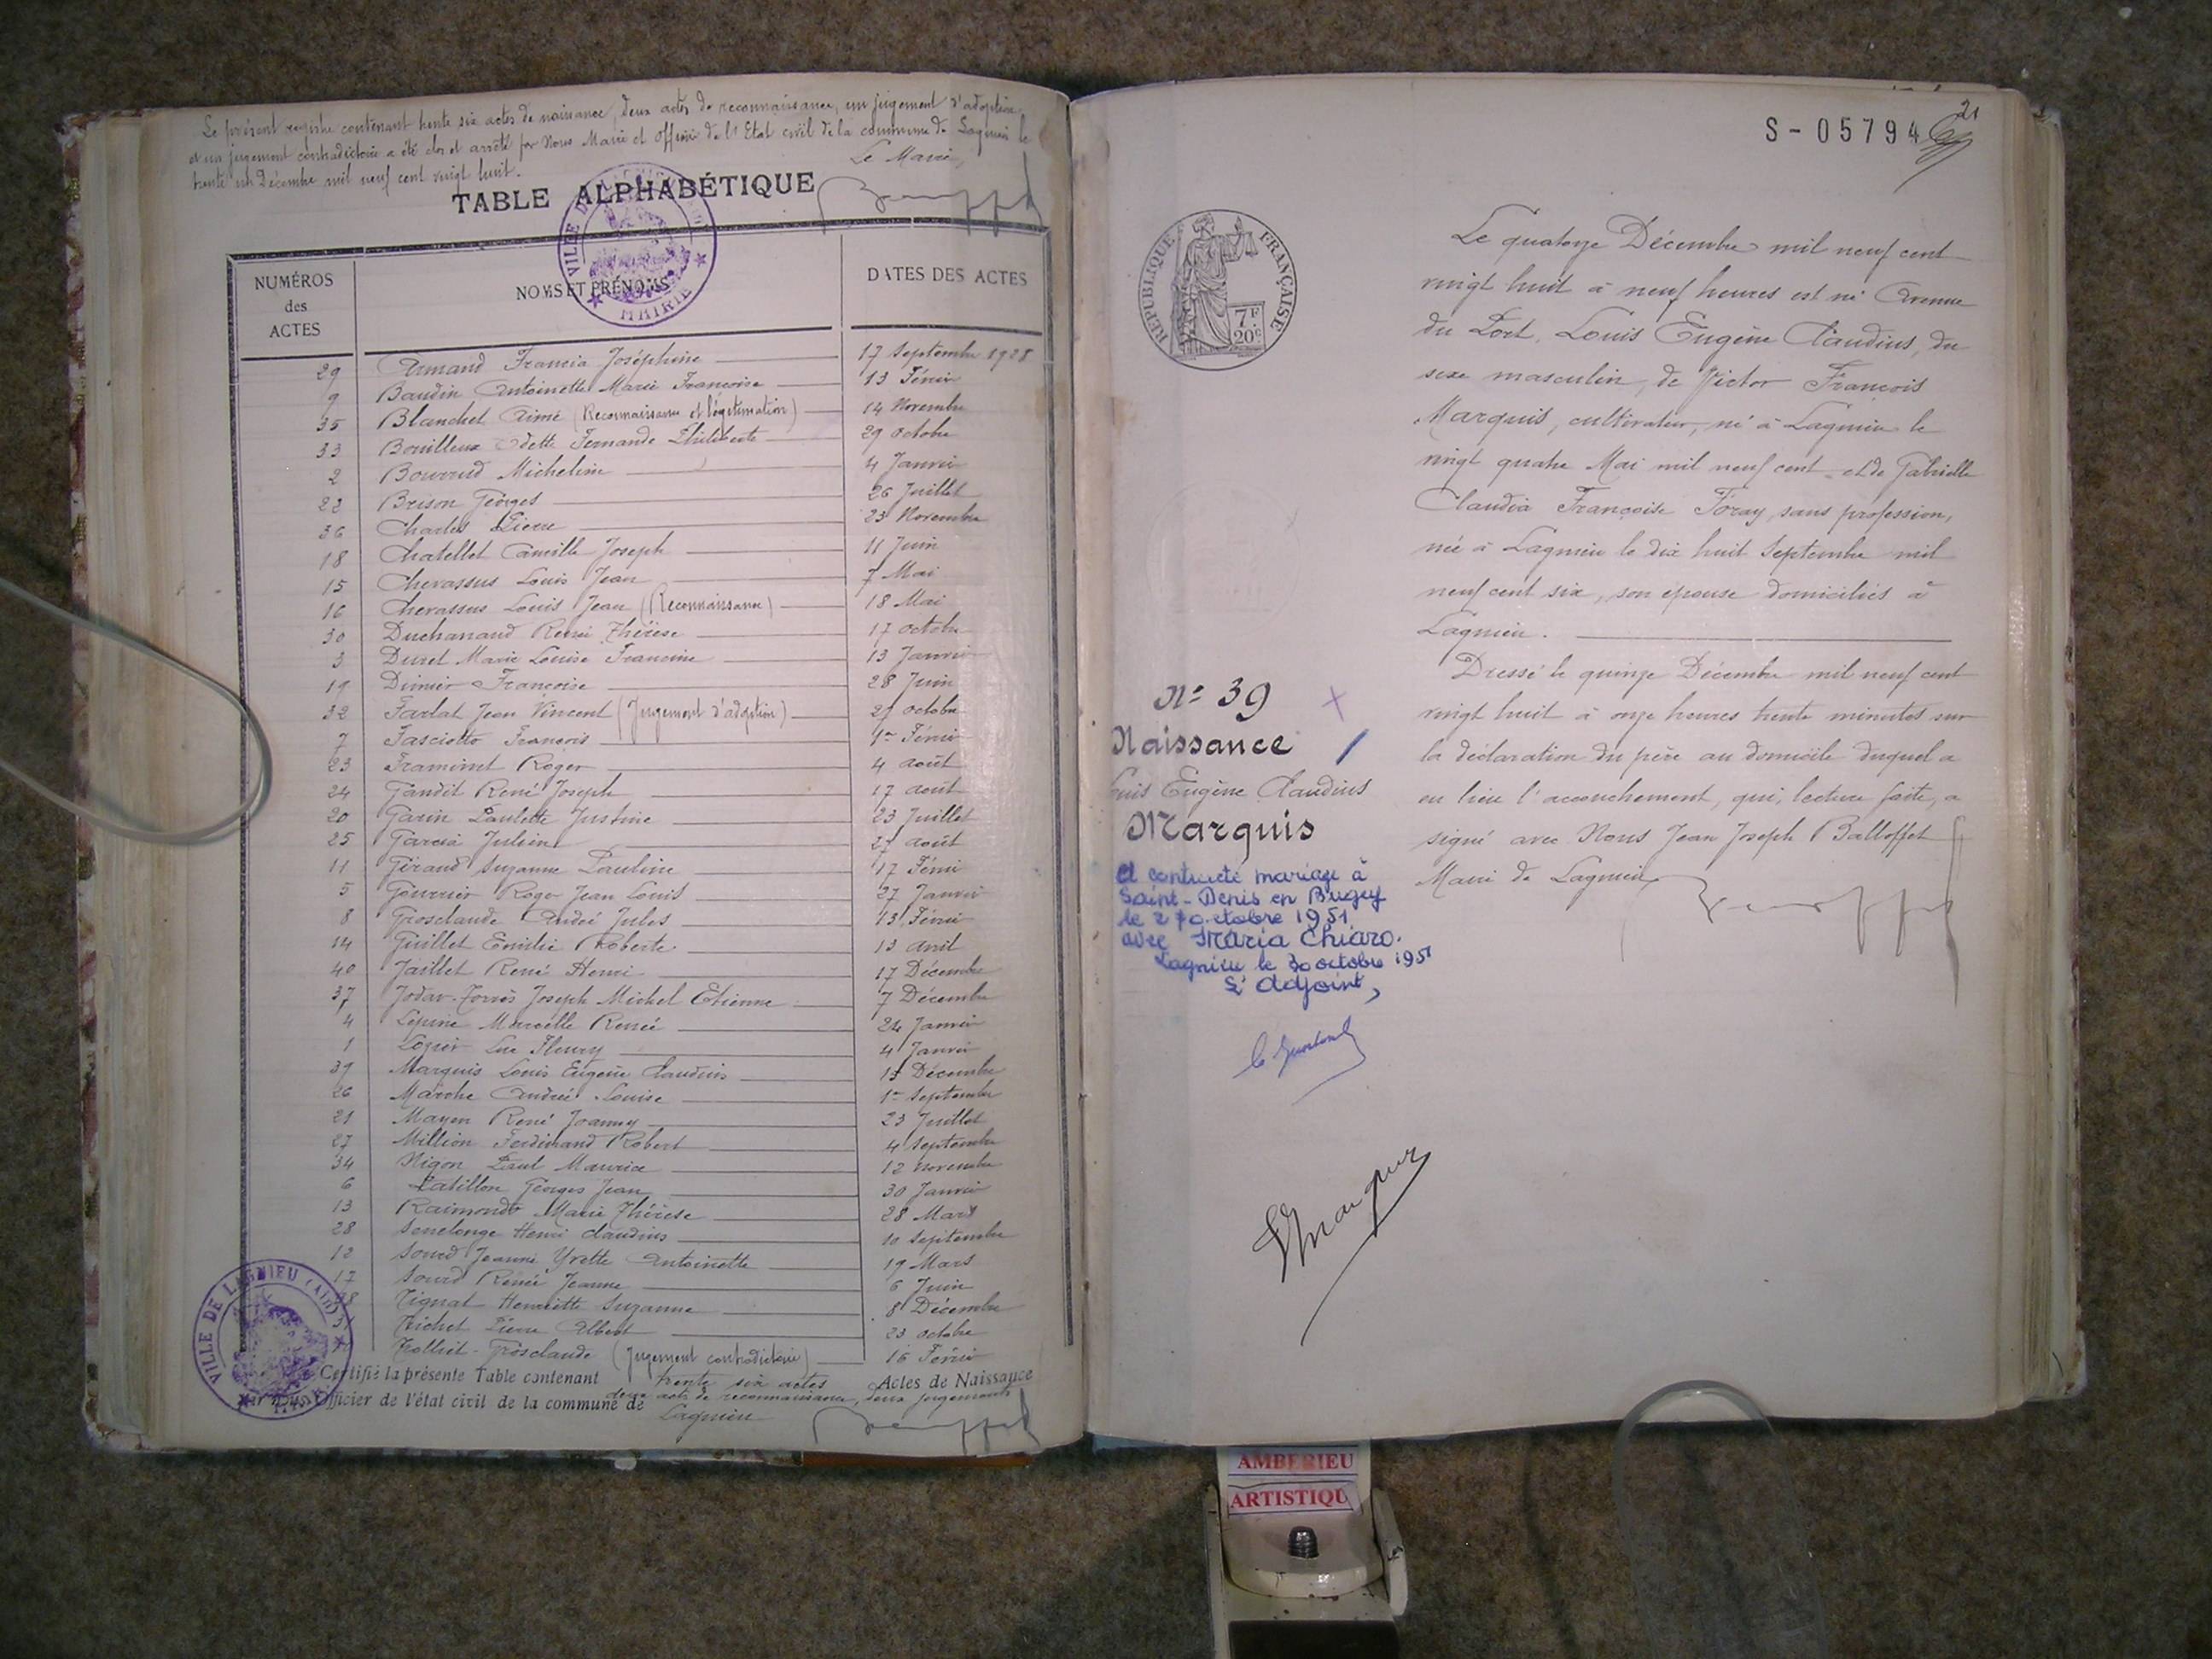 Le présent registre contenant trente six actes de naissance, deux actes de reconnaissance, un jugement d'adoption
et un jugement contradictoire a été clos et arrêté par Nous Maire et Officier de l'Etat civil de la commune de Lagnieu le
trente un Décembre mil neuf cent vingt huit.
Le Maire,
TABLE ALPHABÉTIQUE
VILLE DE LAGNIEU MAIRIE
NUMÉROS des ACTES NOMS ET PRÉNOMS DATES DES ACTES
29 Armand Francia Joséphine 17 Septembre 1928
9 Baudin Antoinette Marie Françoise 13 Février
35 Blanchet Aimé (Reconnaissance et légitimation) 14 Novembre
33 Bouilleux Odette Fernande Philiberte 29 Octobre
2 Bouvrud Micheline 4 Janvier
22 Brison Georges 26 Juillet
36 Charles Pierre 23 Novembre
18 Chatellet Camille Joseph 11 Juin
15 Chevassus Louis Jean 7 Mai
16 Chevassus Louis Jean (Reconnaissance) 18 Mai
30 Duchanaud Renée Thérèse 17 octobre
3 Duret Marie Louise Francine 13 Janvier
19 Dimier Françoise 28 Juin
32 Farlat Jean Vincent (Jugement d'adoption) 27 octobre
7 Fasciotto François 1er Février
23 Framinet Roger 4 août
24 Gandit René Joseph 17 août
20 Garin Paulette Justine 23 Juillet
25 Garcia Julien 27 août
11 Giraud Suzanne Pauline 17 Février
5 Gourrier Roger Jean Louis 27 Janvier
8 Grosclaude André Jules 13 Février
14 Guillet Emilie Roberte 13 avril
40 Jaillet René Henri 17 Décembre
37 Jodar-Torrès Joseph Michel Etienne 7 Décembre
4 Lépine Marcelle Renée 24 Janvier
1 Luc Fleury 4 Janvier
39 Marquis Louis Eugène Claudius 15 Décembre
26 Marche Andrée Louise 1er Septembre
21 Mayen René Joanny 23 Juillet
27 Million Ferdinand Robert 4 Septembre
34 Nigon Paul Maurice 12 novembre
6 Patillon Georges Jean 30 Janvier
13 Raimondo Marie Thérèse 28 Mars
28 Senelonge Henri Claudius 10 Septembre
12 Sourd Jeanne Yvette Antoinette 19 Mars
17 Sourd Renée Jeanne 6 Juin
38 Tignat Henriette Suzanne 8 Décembre
31 Pierre Albert 23 octobre
Grosclaude (Jugement contradictoire) 16 Février
VILLE DE LAGNIEU (AIN)
Certifié la présente Table contenant trente six actes Actes de Naissance
deux acts de reconnaissance, deux jugements
par nous Officier de l'état civil de la commune de Lagnieu
S-05794
21
RÉPUBLIQUE FRANÇAISE
7F 20c
Le quatorze Décembre mil neuf cent
vingt huit à neuf heures est né Avenue
du Port, Louis Eugène Claudius, du
sexe masculin, de Victor François
Marquis, cultivateur, né à Lagnieu le
vingt quatre Mai mil neuf cent et de Gabrielle
Claudia Françoise Foray, sans profession,
née à Lagnieu le dix huit Septembre mil
neuf cent six, son épouse domiciliés à
Lagnieu.
Dressé le quinze Décembre mil neuf cent
vingt huit à onze heures trente minutes sur
la déclaration du père au domicile duquel a
eu lieu l'accouchement, qui, lecture faite, a
signé avec Nous Jean Joseph Balloffet
Maire de Lagnieu
N° 39
Naissance
Louis Eugène Claudius
Marquis
A contracté mariage à
Saint-Denis en Bugey
le 27 octobre 1951
avec Maria Chiaro.
Lagnieu le 30 octobre 1951
L'Adjoint,
VMarquis
AMBERIEU
ARTISTIQU